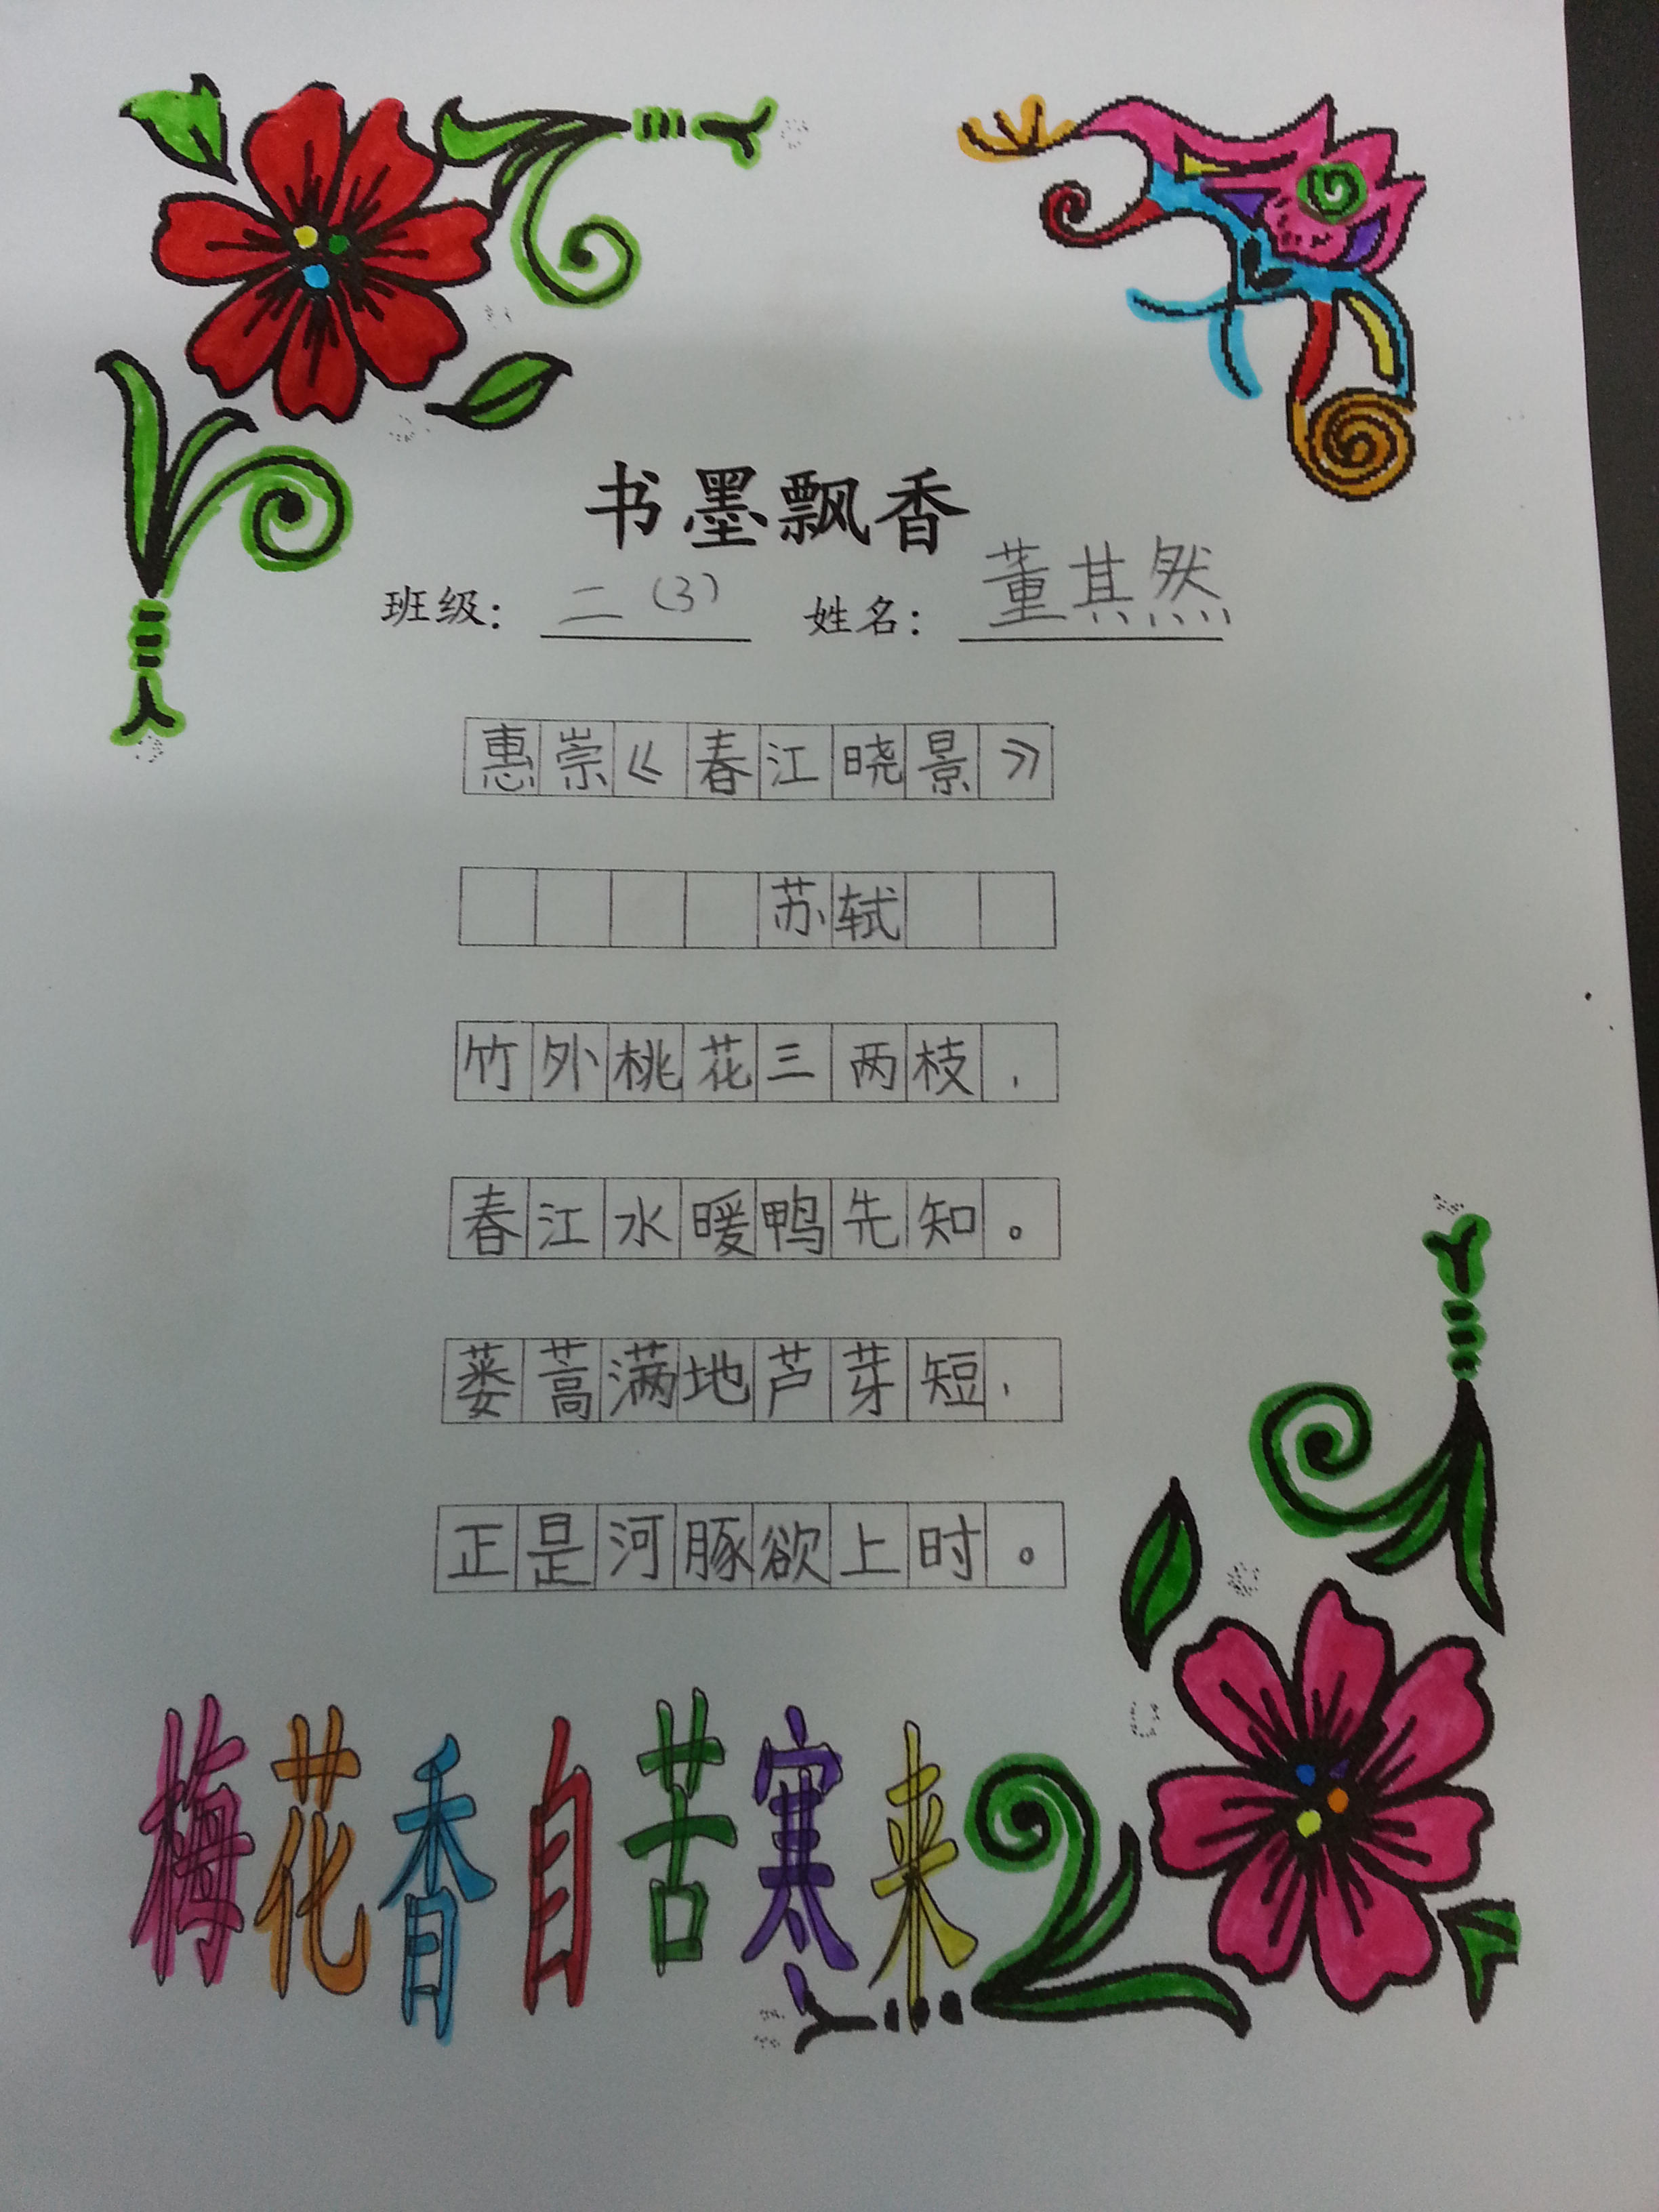 书墨飘香
班级： 二（3） 姓名： 董其然
惠崇《春江晓景》
苏轼
竹外桃花三两枝，
春江水暖鸭先知。
蒌蒿满地芦芽短，
正是河豚欲上时。
梅花香自苦寒来